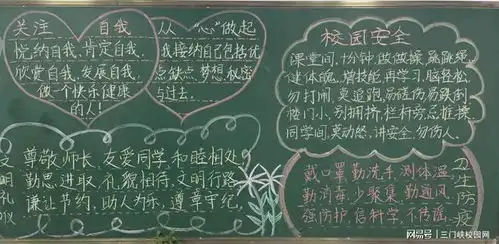 关注 自我
悦纳自我,肯定自我,
欣赏自我,发展自我,
做一个快乐健康
的人!
从“心”做起
我接纳自己包括优
点缺点 梦想 秘密
与过去。
校园安全
课堂间,十分钟,做做操 跳跳绳,
健体魄,增技能,再学习,脑轻松,
勿打闹,莫追跑,易磕伤易跌倒,
楼门小,别拥挤,栏杆旁忌推搡,
同学间,莫动怒,讲安全,勿伤人。
文明礼仪
尊敬师长,友爱同学 和睦相处,
勤思进取,礼貌相待,文明行路,
谦让节约,助人为乐,遵章守纪,
戴口罩 勤洗手,测体温,
勤消毒,少聚集,勤通风,
强防护,信科学,不传谣。
卫生防疫
网易号 | 三门峡校园网